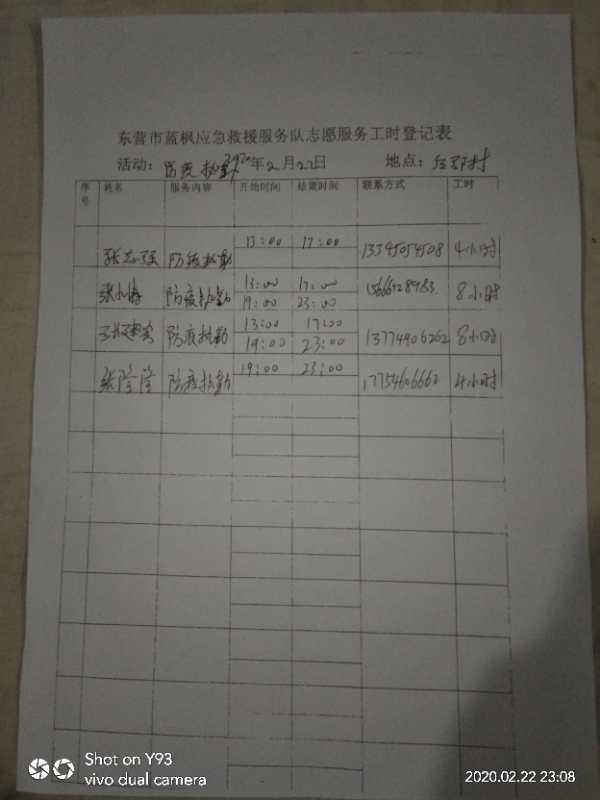 东营市蓝枫应急救援服务队志愿服务工时登记表
活动: 防疫执勤 2020年2月22日 地点:
序号 姓名 服务内容 开始时间 结束时间 联系方式 工时
张志强 防疫执勤 13:00 17:00 13345054508 4小时
防疫执勤 13:00 17:00 15666289983 8小时
19:00 23:00
防疫执勤 13:00 17:00 13774906262 8小时
19:00 23:00
张隆隆 防疫执勤 19:00 23:00 17754606662 4小时
Shot on Y93
vivo dual camera
2020.02.22 23:08